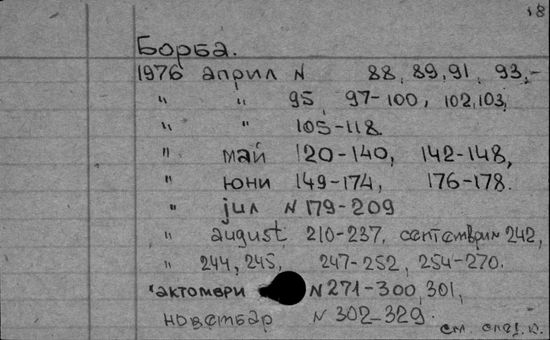 18
Борба.
1976 април N 88, 89, 91, 93,-
" " 95, 97-100, 102, 103,
" " 105-118.
" май 120-140, 142-148,
" юни 149-174, 176-178.
" јил N 179-209
" august 210-237, септември 242,
" 244, 245, 247-252, 254-270.
" актомври N 271-300, 301,
новембар N 302-329.
см. след. к.